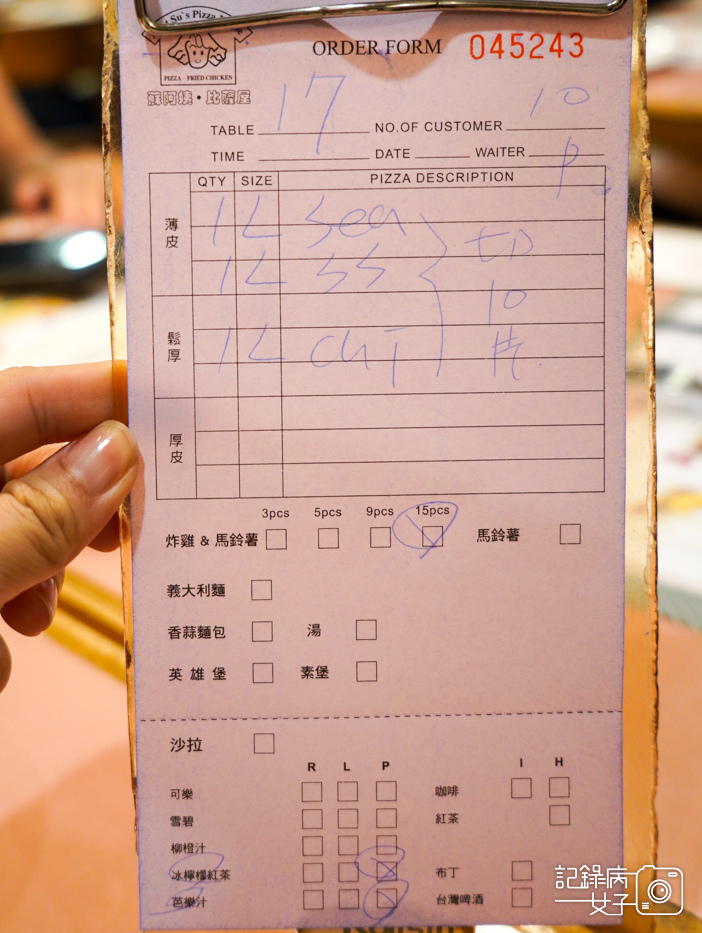 Su's Pizza
PIZZA · FRIED CHICKEN
蘇阿姨·比薩屋
ORDER FORM 045243
TABLE 17 NO.OF CUSTOMER 10
TIME DATE WAITER P
QTY SIZE PIZZA DESCRIPTION
薄皮
1 L Sea
1 L SS
切
10
片
鬆厚
1 L chi
厚皮
3pcs 5pcs 9pcs 15pcs
炸雞 & 馬鈴薯 馬鈴薯
義大利麵
香蒜麵包 湯
英雄堡 素堡
沙拉
R L P I H
可樂 咖啡
雪碧 紅茶
柳橙汁
冰檸檬紅茶 布丁
芭樂汁 台灣啤酒
記錄病
女子